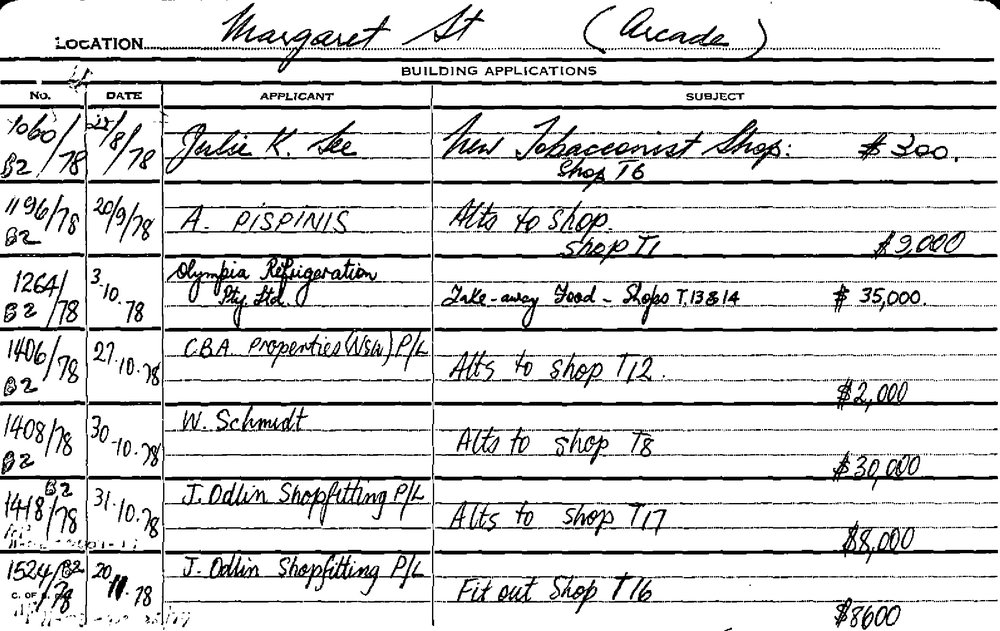 LOCATION Margaret St (Arcade)
BUILDING APPLICATIONS
No. DATE APPLICANT SUBJECT
1060/78 22/8/78 Julie K. See New Tobacconist Shop: $300.
B2 Shop T6
1196/78 20/9/78 A. PISPINIS Alts to shop.
B2 shop T1 $9,000
1264/78 3.10.78 Olympia Refrigeration
B2 Pty. Ltd. Take-away Food - Shops T.13&14 $35,000.
1406/78 27.10.78 CBA Properties (NSW) P/L Alts to shop T12.
B2 $2,000
1408/78 30.10.78 W. Schmidt Alts to shop T8
B2 $30,000
B2
1418/78 31.10.78 J. Odlin Shopfitting P/L Alts to shop T17
$8,000
1524/78 B2 20.11.78 J. Odlin Shopfitting P/L Fit out Shop T16
C. OF
$8600